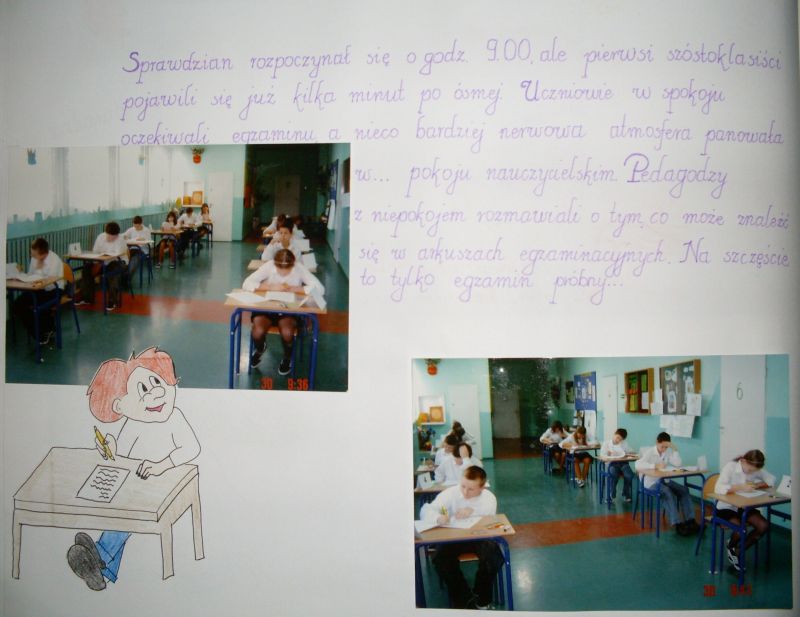 Sprawdzian rozpoczynał się o godz. 9.00, ale pierwsi szóstoklasiści
pojawili się już kilka minut po ósmej. Uczniowie w spokoju
oczekiwali egzaminu, a nieco bardziej nerwowa atmosfera panowała
w... pokoju nauczycielskim. Pedagodzy
z niepokojem rozmawiali o tym, co może znaleźć
się w arkuszach egzaminacyjnych. Na szczęście
to tylko egzamin próbny...
30 9:36
6
30